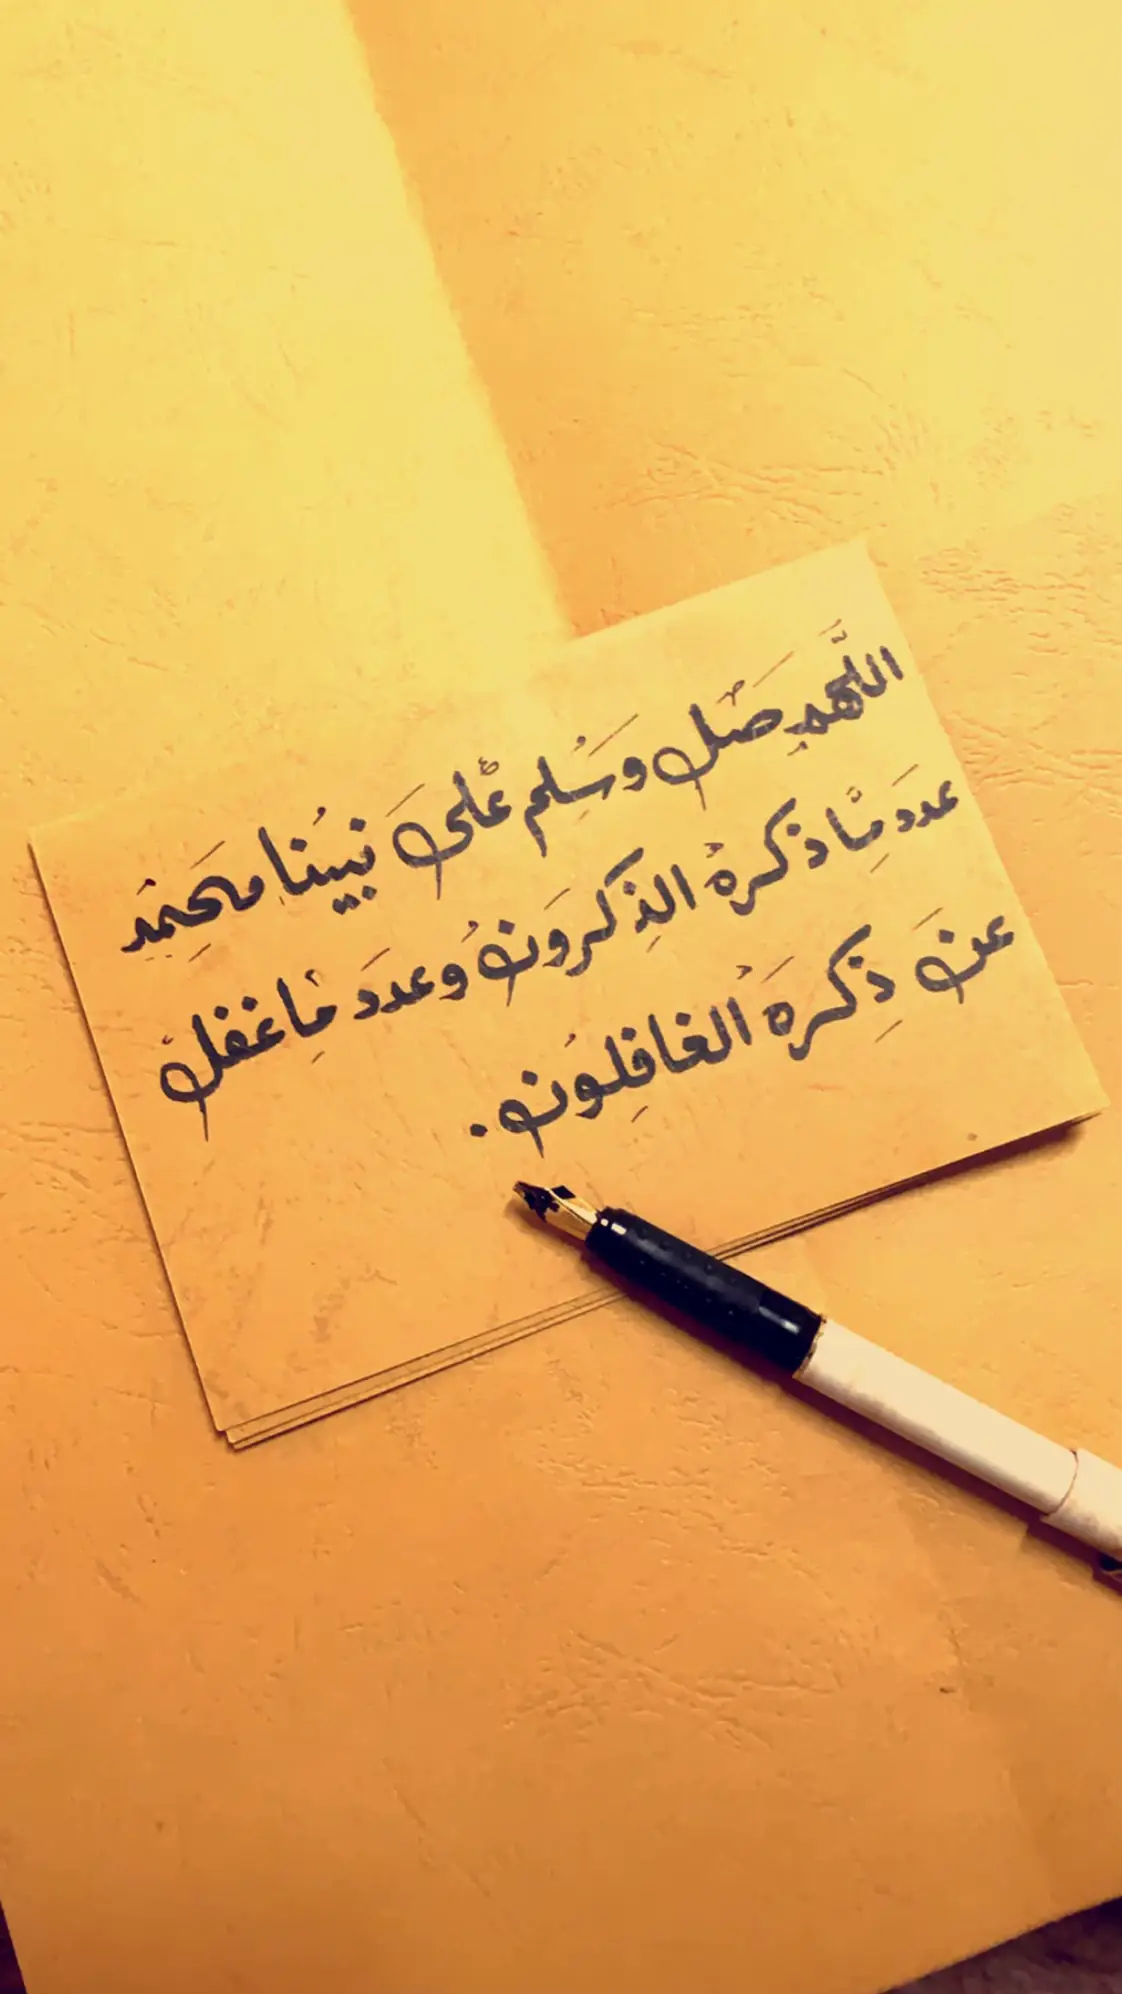 اللَّهم صل وسلم على نبينا محمد
عدد ما ذكره الذكرون وعدد ما غفل
عن ذكره الغافلون.